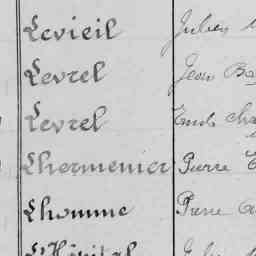 Levieil Julien
Levrel Jean Ba
Levrel Emile Cha
Lhermenier Pierre
Lhomme Pierre
L'Hôpital Jules